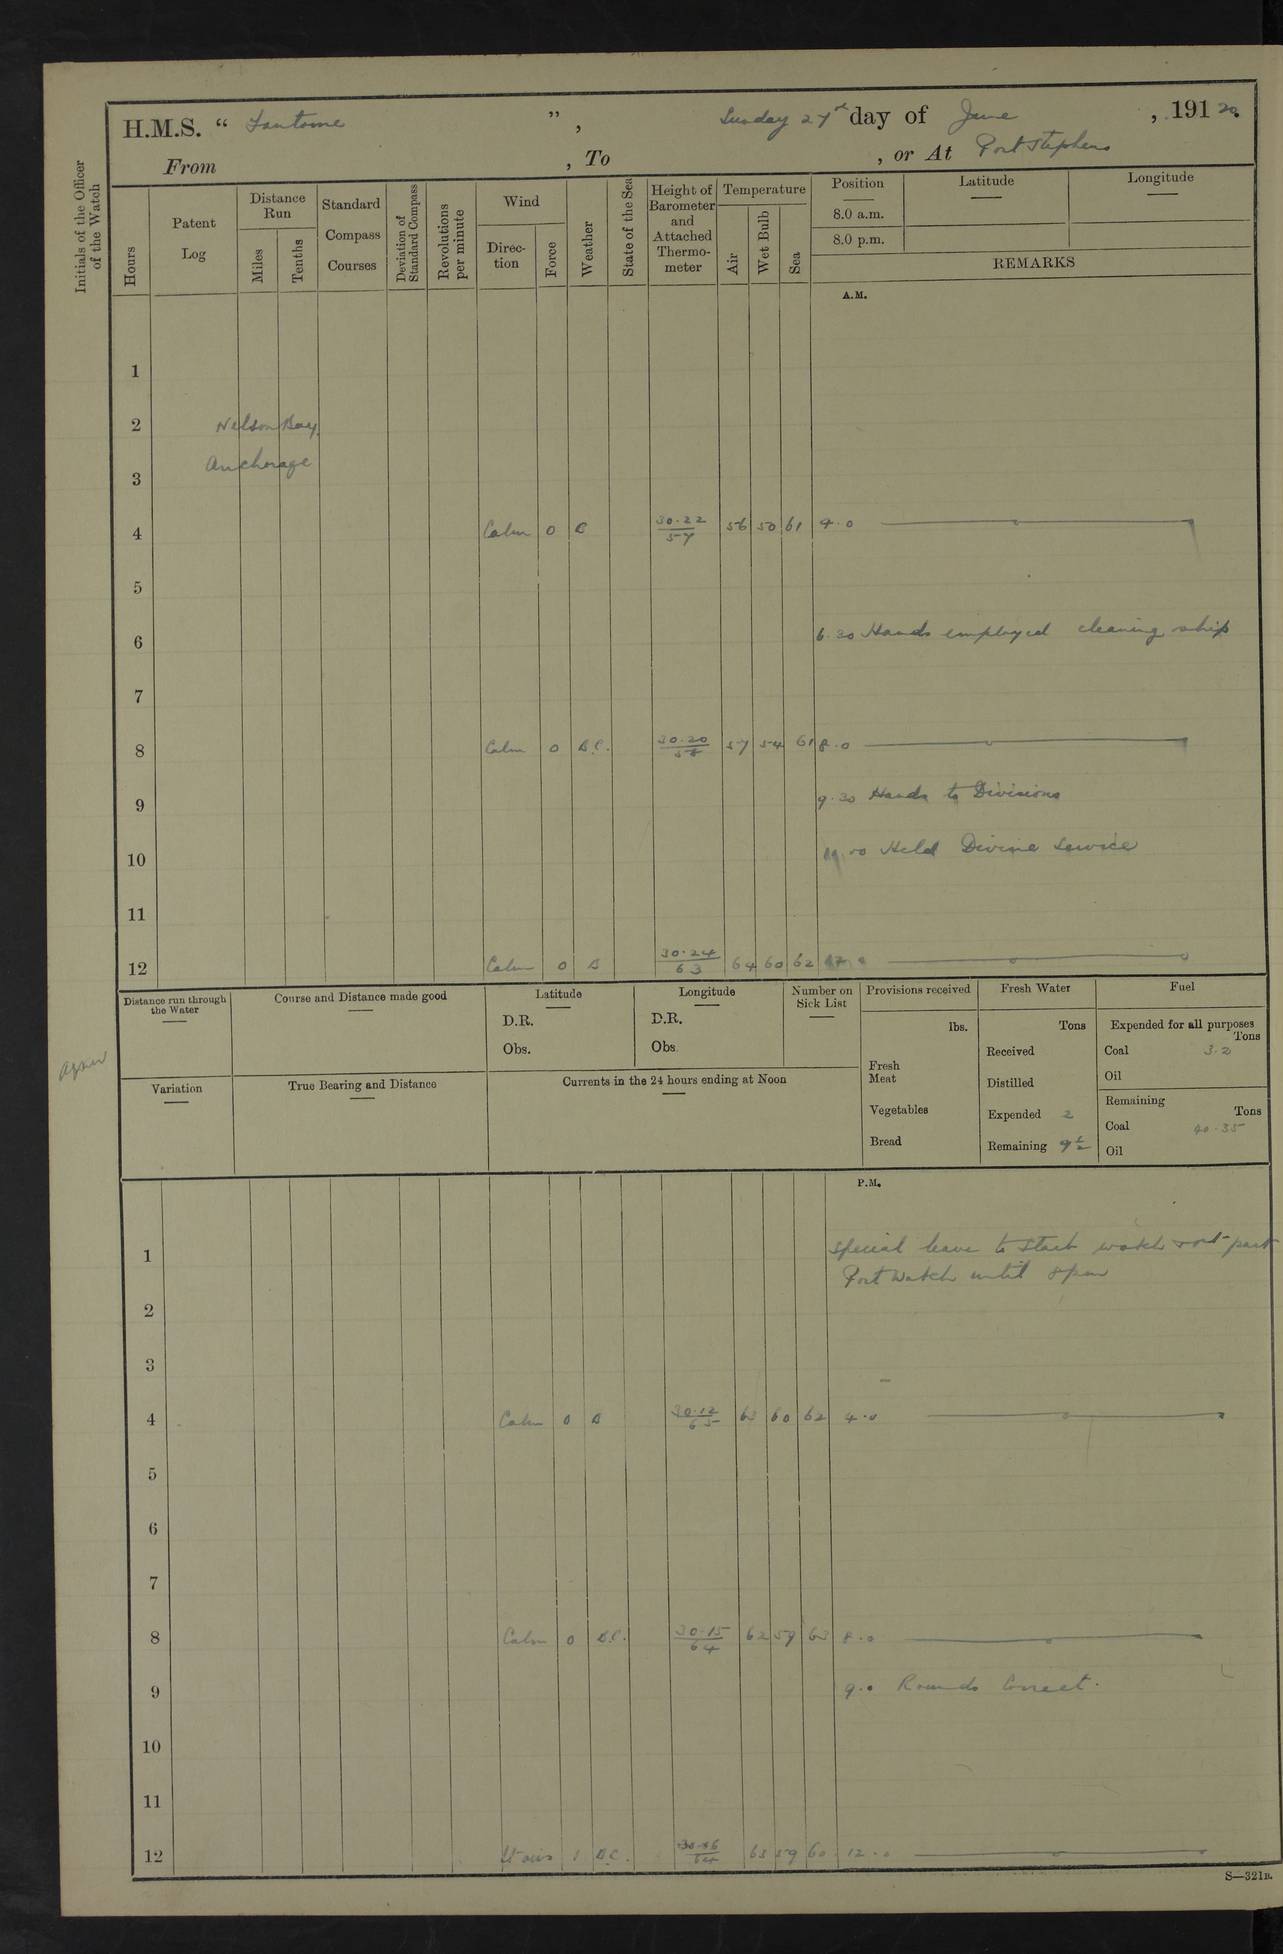 H.M.S. “ Fantome ”, Sunday 27th day of June, 1920.
From , To , or At Port Stephens
Initials of the Officer of the Watch
Hours
Patent Log
Distance Run
Miles
Tenths
Standard Compass Courses
Deviation of Standard Compass
Revolutions per minute
Wind
Direc-tion
Force
Weather
State of the Sea
Height of Barometer and Attached Thermo-meter
Temperature
Air
Wet Bulb
Sea
Position
8.0 a.m.
8.0 p.m.
Latitude
Longitude
REMARKS
A.M.
1
2 Nelson Bay
Anchorage
3
4 Calm 0 B 30.22/57 56 50 61 4.0
5
6 6.30 Hands employed cleaning ship
7
8 Calm 0 B.C. 30.20/58 57 54 61 8.0
9 9.30 Hands to Divisions
10 Held Divine Service
11
12 Calm 0 B 30.24/63 64 60 62
Distance run through the Water
Course and Distance made good
Latitude
D.R.
Obs.
Longitude
D.R.
Obs.
Number on Sick List
Provisions received
lbs.
Fresh Meat
Vegetables
Bread
Fresh Water
Tons
Received
Distilled
Expended 2
Remaining 9½
Fuel
Expended for all purposes
Tons
Coal 3.2
Oil
Remaining
Tons
Coal 40.35
Oil
Variation
True Bearing and Distance
Currents in the 24 hours ending at Noon
P.M.
1 Special leave to Starb watch & 1st part
Port Watch until 8pm
2
3
4 Calm 0 B 30.12/65 63 60 62 4.0
5
6
7
8 Calm 0 B.C. 30.15/64 62 59 63 8.0
9 9.0 Rounds Correct.
10
11
12 1 B.C. 30.16/64 63 59 60 12.0
S—321B.